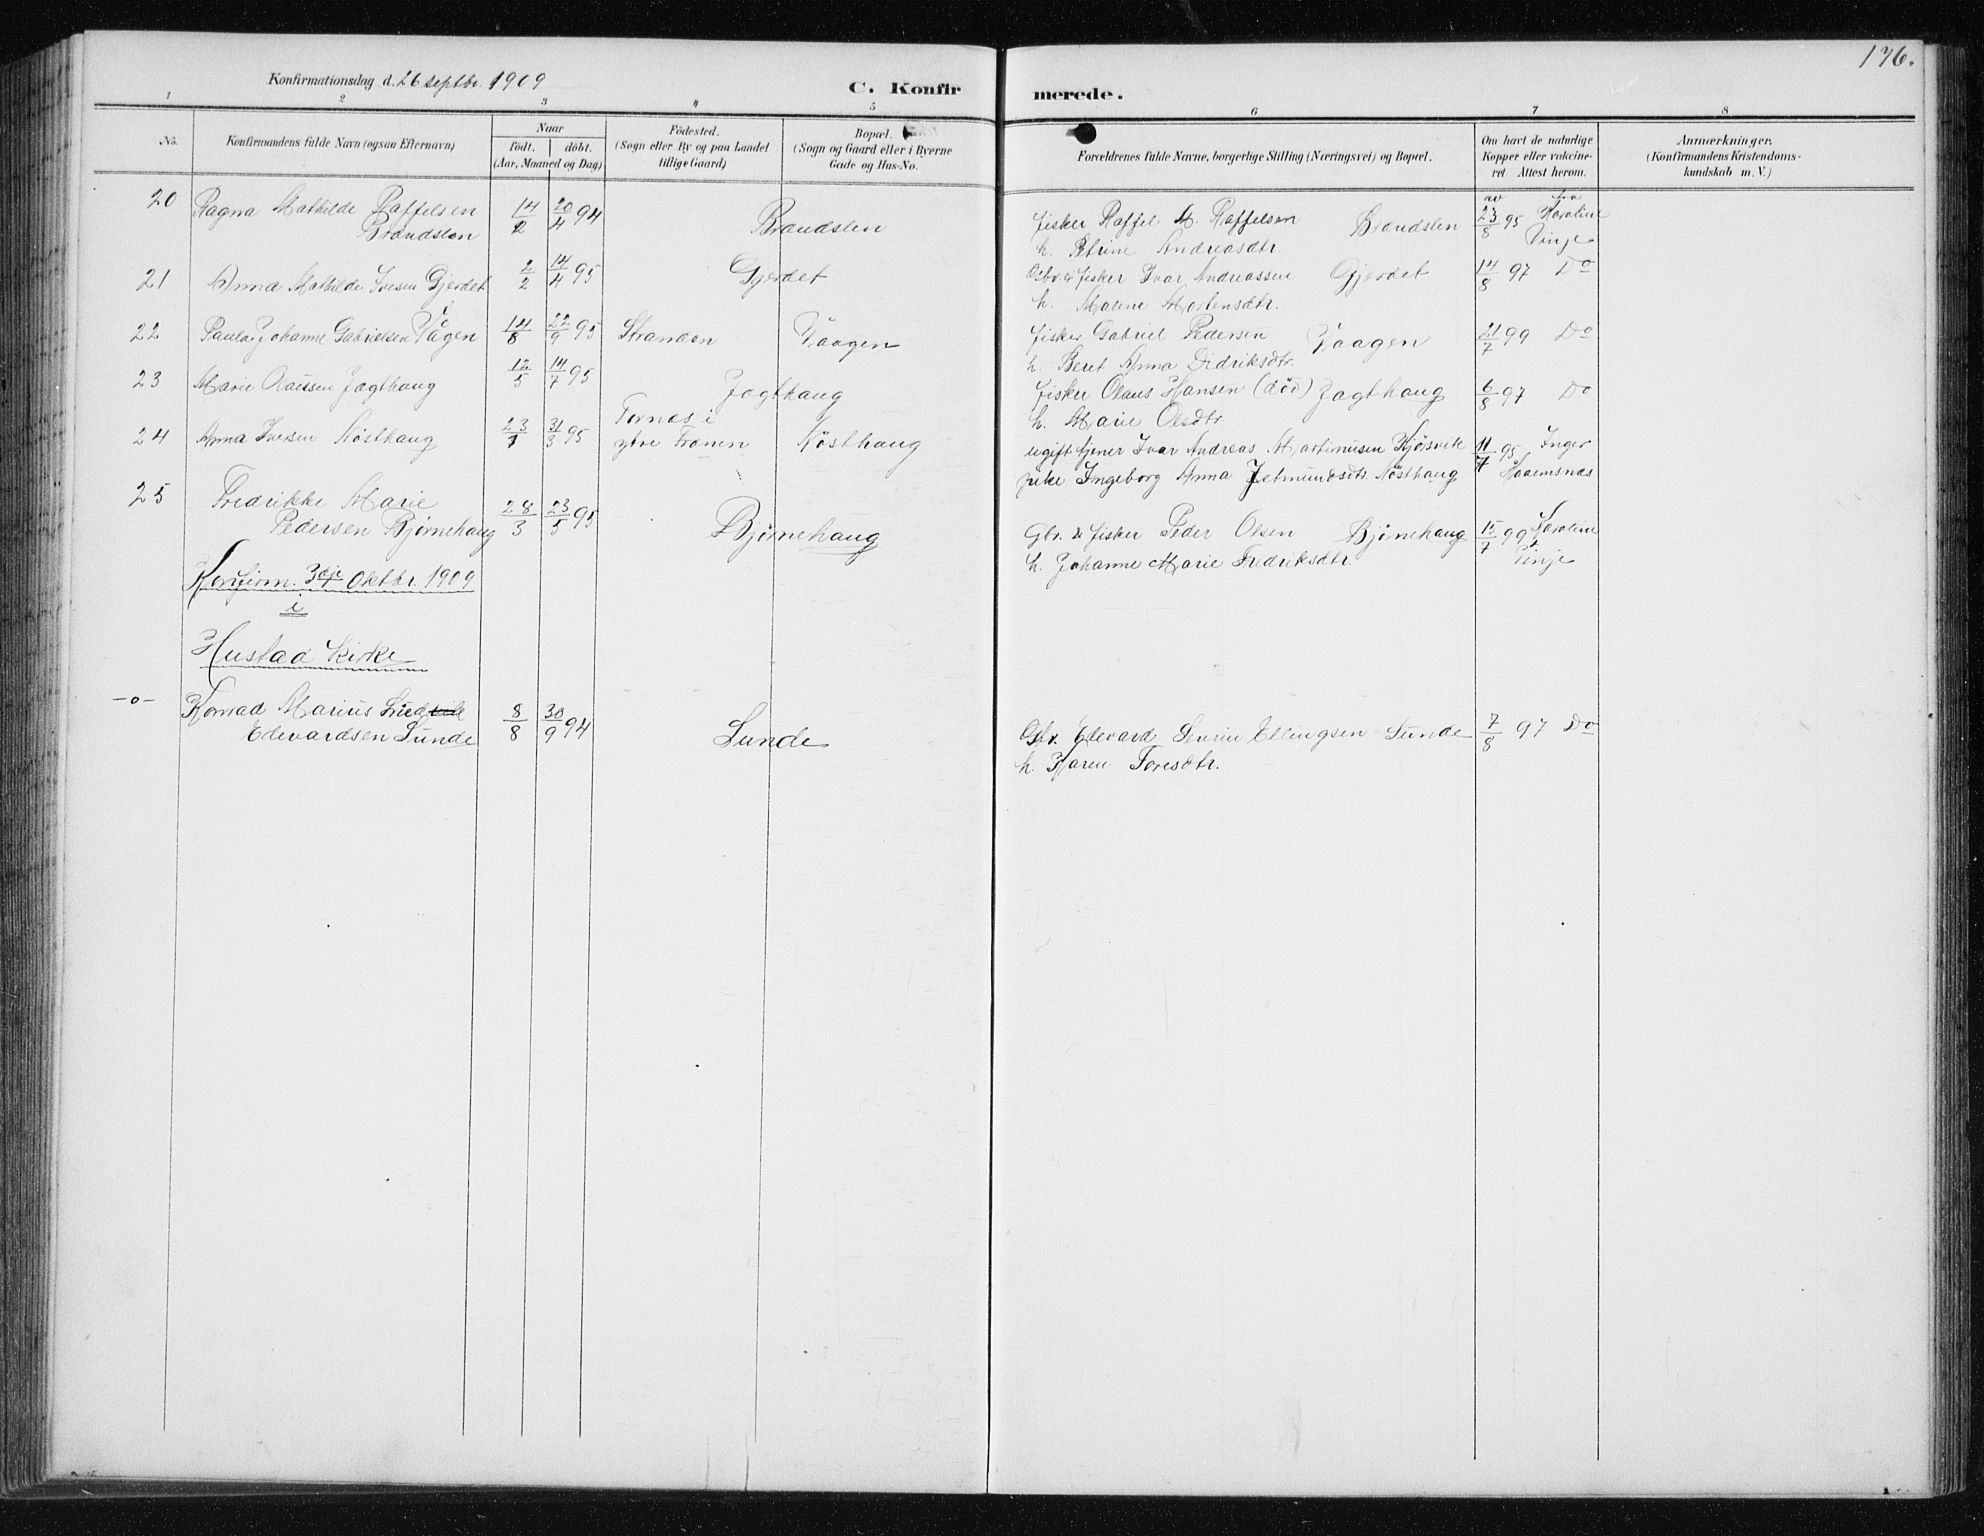 176.
Konfirmationsdag d. 26 septbr. 1909
C. Konfirmerede.
1 2 3 4 5 6 7 8
No.
Konfirmandens fulde Navn (ogsaa Efternavn)
Naar
födt. döbt.
(Aar, Maaned og Dag)
Födested.
(Sogn eller By og paa Landet
tillige Gaard)
Bopæl.
(Sogn og Gaard eller i Byerne
Gade og Hus-No.
Forældrenes fulde Navne, borgerlige Stilling (Næringsvei) og Bopæl.
Om havt de naturlige
Kopper eller vakcine-
ret. Attest herom.
Anmærkninger.
(Konfirmandens Kristendoms-
kundskab m. V.)
av fra
20 Ragna Mathilde Raffelsen 14/2 20/4 94 Brandsten fisker Raffel M. Raffelsen Brandsten 23/8 95 Karoline
Brandsten h. Petrine Andreasdtr. Vinje
21 Anna Mathilde Ivesen Gjerdet 2/2 14/4 95 Gjerdet Gbr. & fisker Ivar Andreassen Gjerdet 14/8 97 Do
h. Malene Mortensdtr.
22 Paula Johanne Gabrielsen Vågen 14/8 22/9 95 Stranden Vaagen fisker Gabriel Pedersen Vaagen 21/7 99 Do
h. Beret Anna Didriksdtr.
23 Marie Olaussen Jagthaug 12/5 14/7 95 Jagthaug fisker Olaus Hansen (død) Jagthaug 6/8 97 Do
h. Marie Olsdtr.
24 Anna Iversen Nösthaug 23/1 31/3 95 Tornes i
ytre Frænen Nösthaug ugift tjener Ivar Andreas Martinusen Kjörsvik 11/7 95 Inger
pike Ingeborg Anna Jetmundsdtr. Nösthaug Haaemsnæs
25 Fredrikke Marie
Pedersen Bjørnehaug 28/3 23/5 95 Bjørnehaug Gbr. & fisker Peder Olsen Bjørnehaug 15/7 99 Karoline
h. Johanne Marie Fredriksdtr. Vinje
Konfirm. 3dje Oktbr. 1909
i
Hustad Kirke
-o- Konrad Marius
Edevardsen Sunde 8/8 30/9 94 Sunde Gbr. Edevard Severin Ellingsen Sunde 7/8 97 Do
h. Karen Toresdtr.